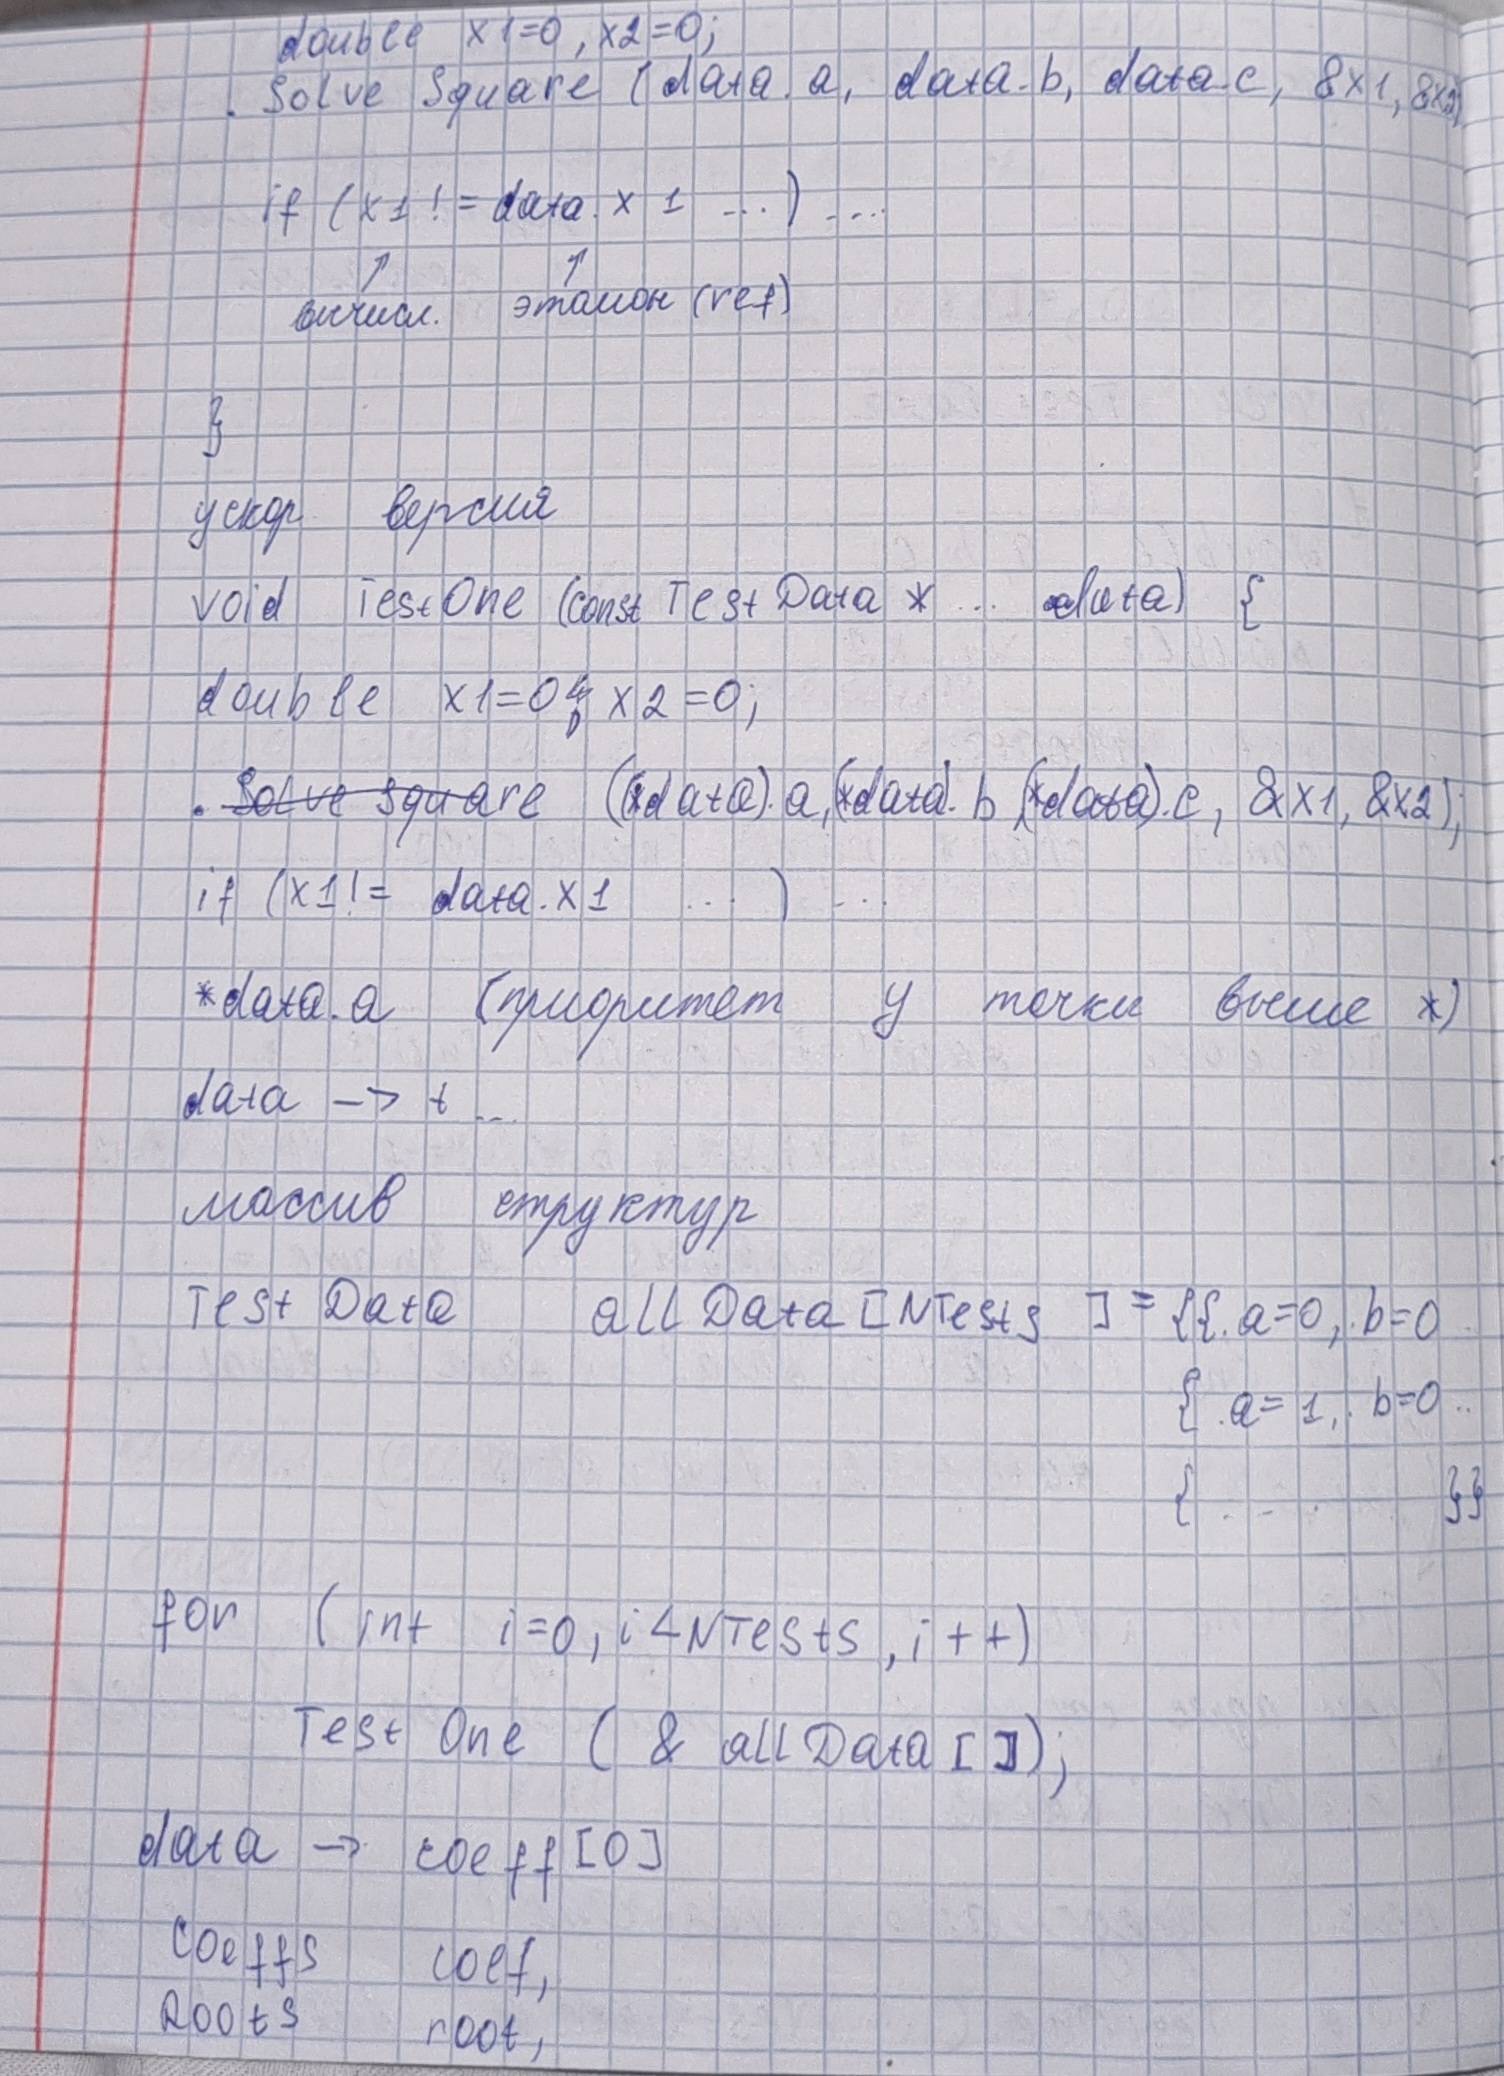 double x1=0, x2=0;
. Solve Square (data.a, data.b, data.c, &x1, &x2)
if (x1 != data.x1 ...) ....
вычисл. эталон (ref)
}
ускор версия
void TestOne (const Test Data * ... data) {
double x1=0, x2=0;
. Solve Square ((*data).a, (*data).b, (*data).c, &x1, &x2);
if (x1 != data.x1 ... ) ...
*data.a (приоритет у точки выше *)
data -> t ...
массив структур
Test Data all Data [NTests ] = {{.a=0, .b=0
{ .a=1, .b=0 ..
{ ... . }}
for (int i=0, i<NTests, i++)
Test One ( & all Data [ ]);
data -> coeff [0]
Coeffs coef,
Roots root,